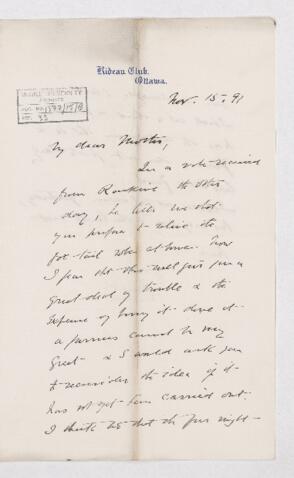 Rideau Club,
Ottawa.
Nov. 15. 91
My dear Mother,
In a note received
from Rankine the other
day, he tells me that
you propose to
fox-tail robe at home. Now
I fear that this will give you a
great deal of trouble & the
expense of having it done at
a furriers cannot be very
great & I would ask you
to reconsider the idea if it
has not yet been carried out.
I think that the fur might